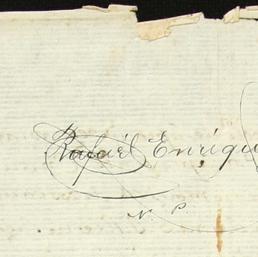 Rafaél Enriqu
N. P.